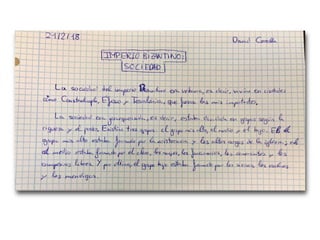 21/2/18 David
IMPERIO BIZANTINO:
SOCIEDAD
La sociedad del imperio Bizantino era urbana, es decir, vivían en ciudades
como Constantinopla, Efeso y Tesalónica, que fueron las más importantes.
La sociedad era jerarquizada, es decir, estaban divididos en grupos según la
riqueza y el poder. Existían tres grupos: el grupo más alto, el medio y el bajo. El
grupo más alto estaba formado por la aristocracia y los altos cargos de la iglesia; el
el medio estaba formado por el clero, los funcionarios, los comerciantes y los
campesinos libres. Y por último, el grupo bajo estaba formado por los siervos, los esclavos
y los mendigos.